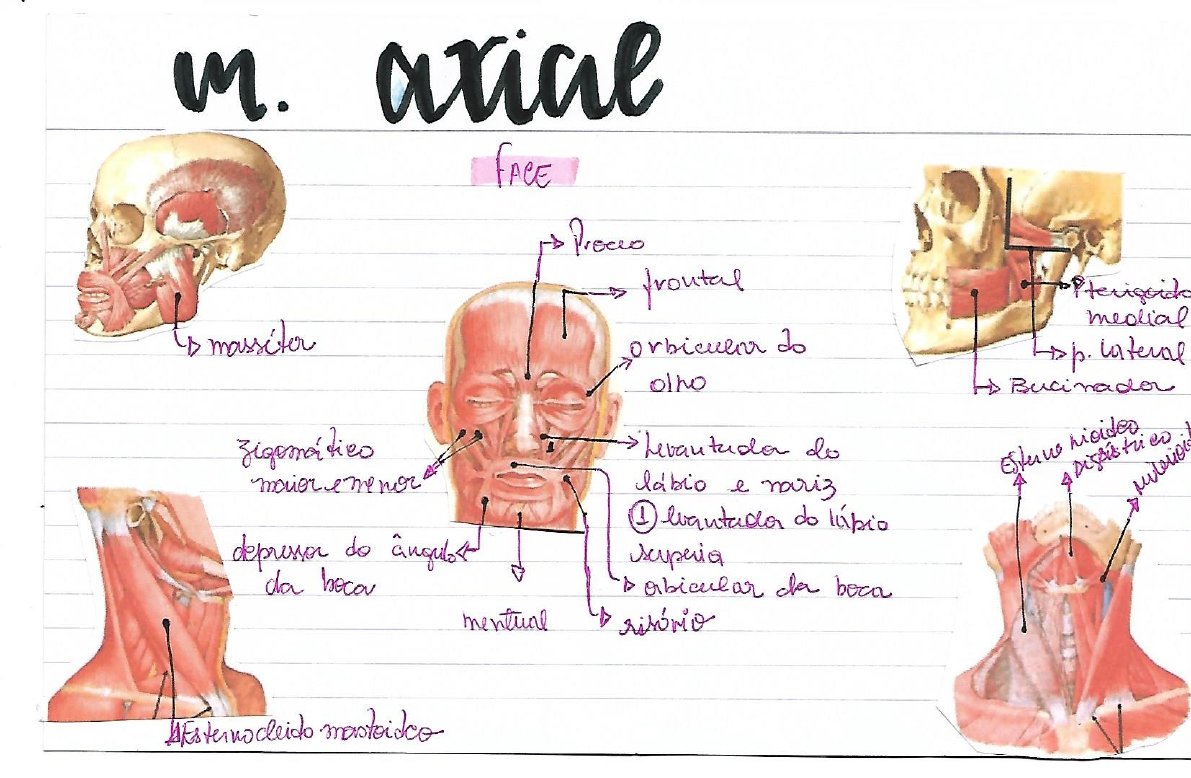 m. axial
FACE
Proceo
frontal
masséter
orbicular do
olho
Pterigoido
medial
p. lateral
Bucinador
Zigomático
maior e menor
Levantador do
lábio e nariz
① levantador do lábio
superio
depressor do ângulo
da boca
orbicular da boca
mentual
risório
Esternocleido mastoideo
Digástrico